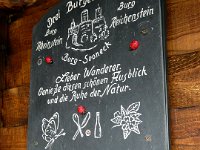 Drei Burgen
Burg Rheinstein
Burg Reichenstein
Burg-Sooneck
Lieber Wanderer,
Genieße diesen schönen Ausblick
und die Ruhe der Natur.